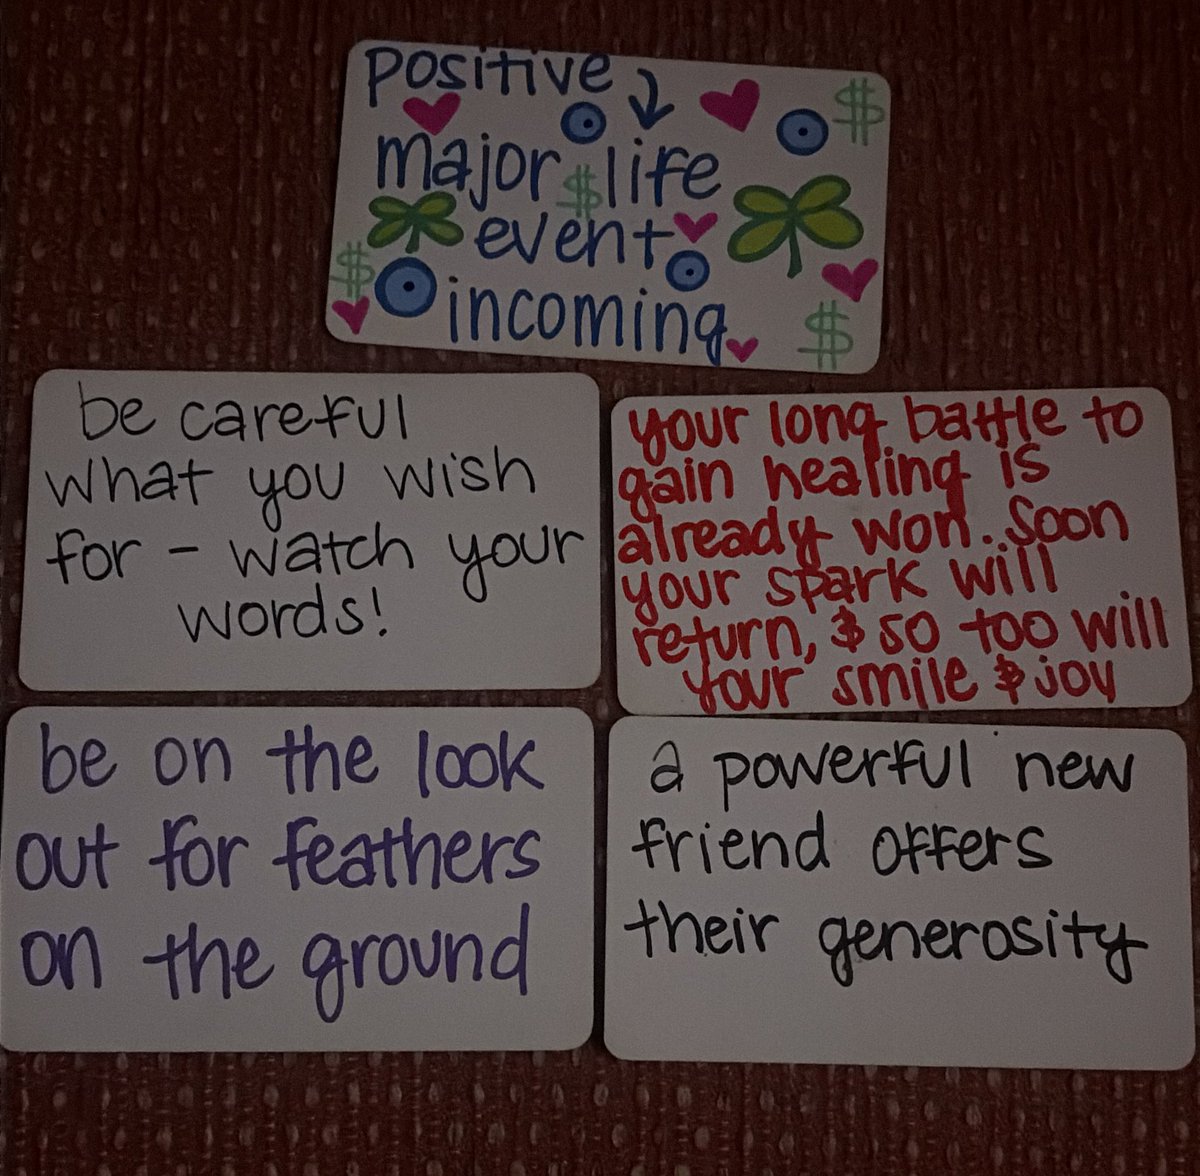 positive
major life
event
incoming
be careful
what you wish
for - watch your
words!
your long battle to
gain healing is
already won. Soon
your spark will
return, & so too will
your smile & joy
be on the look
out for feathers
on the ground
a powerful new
friend offers
their generosity